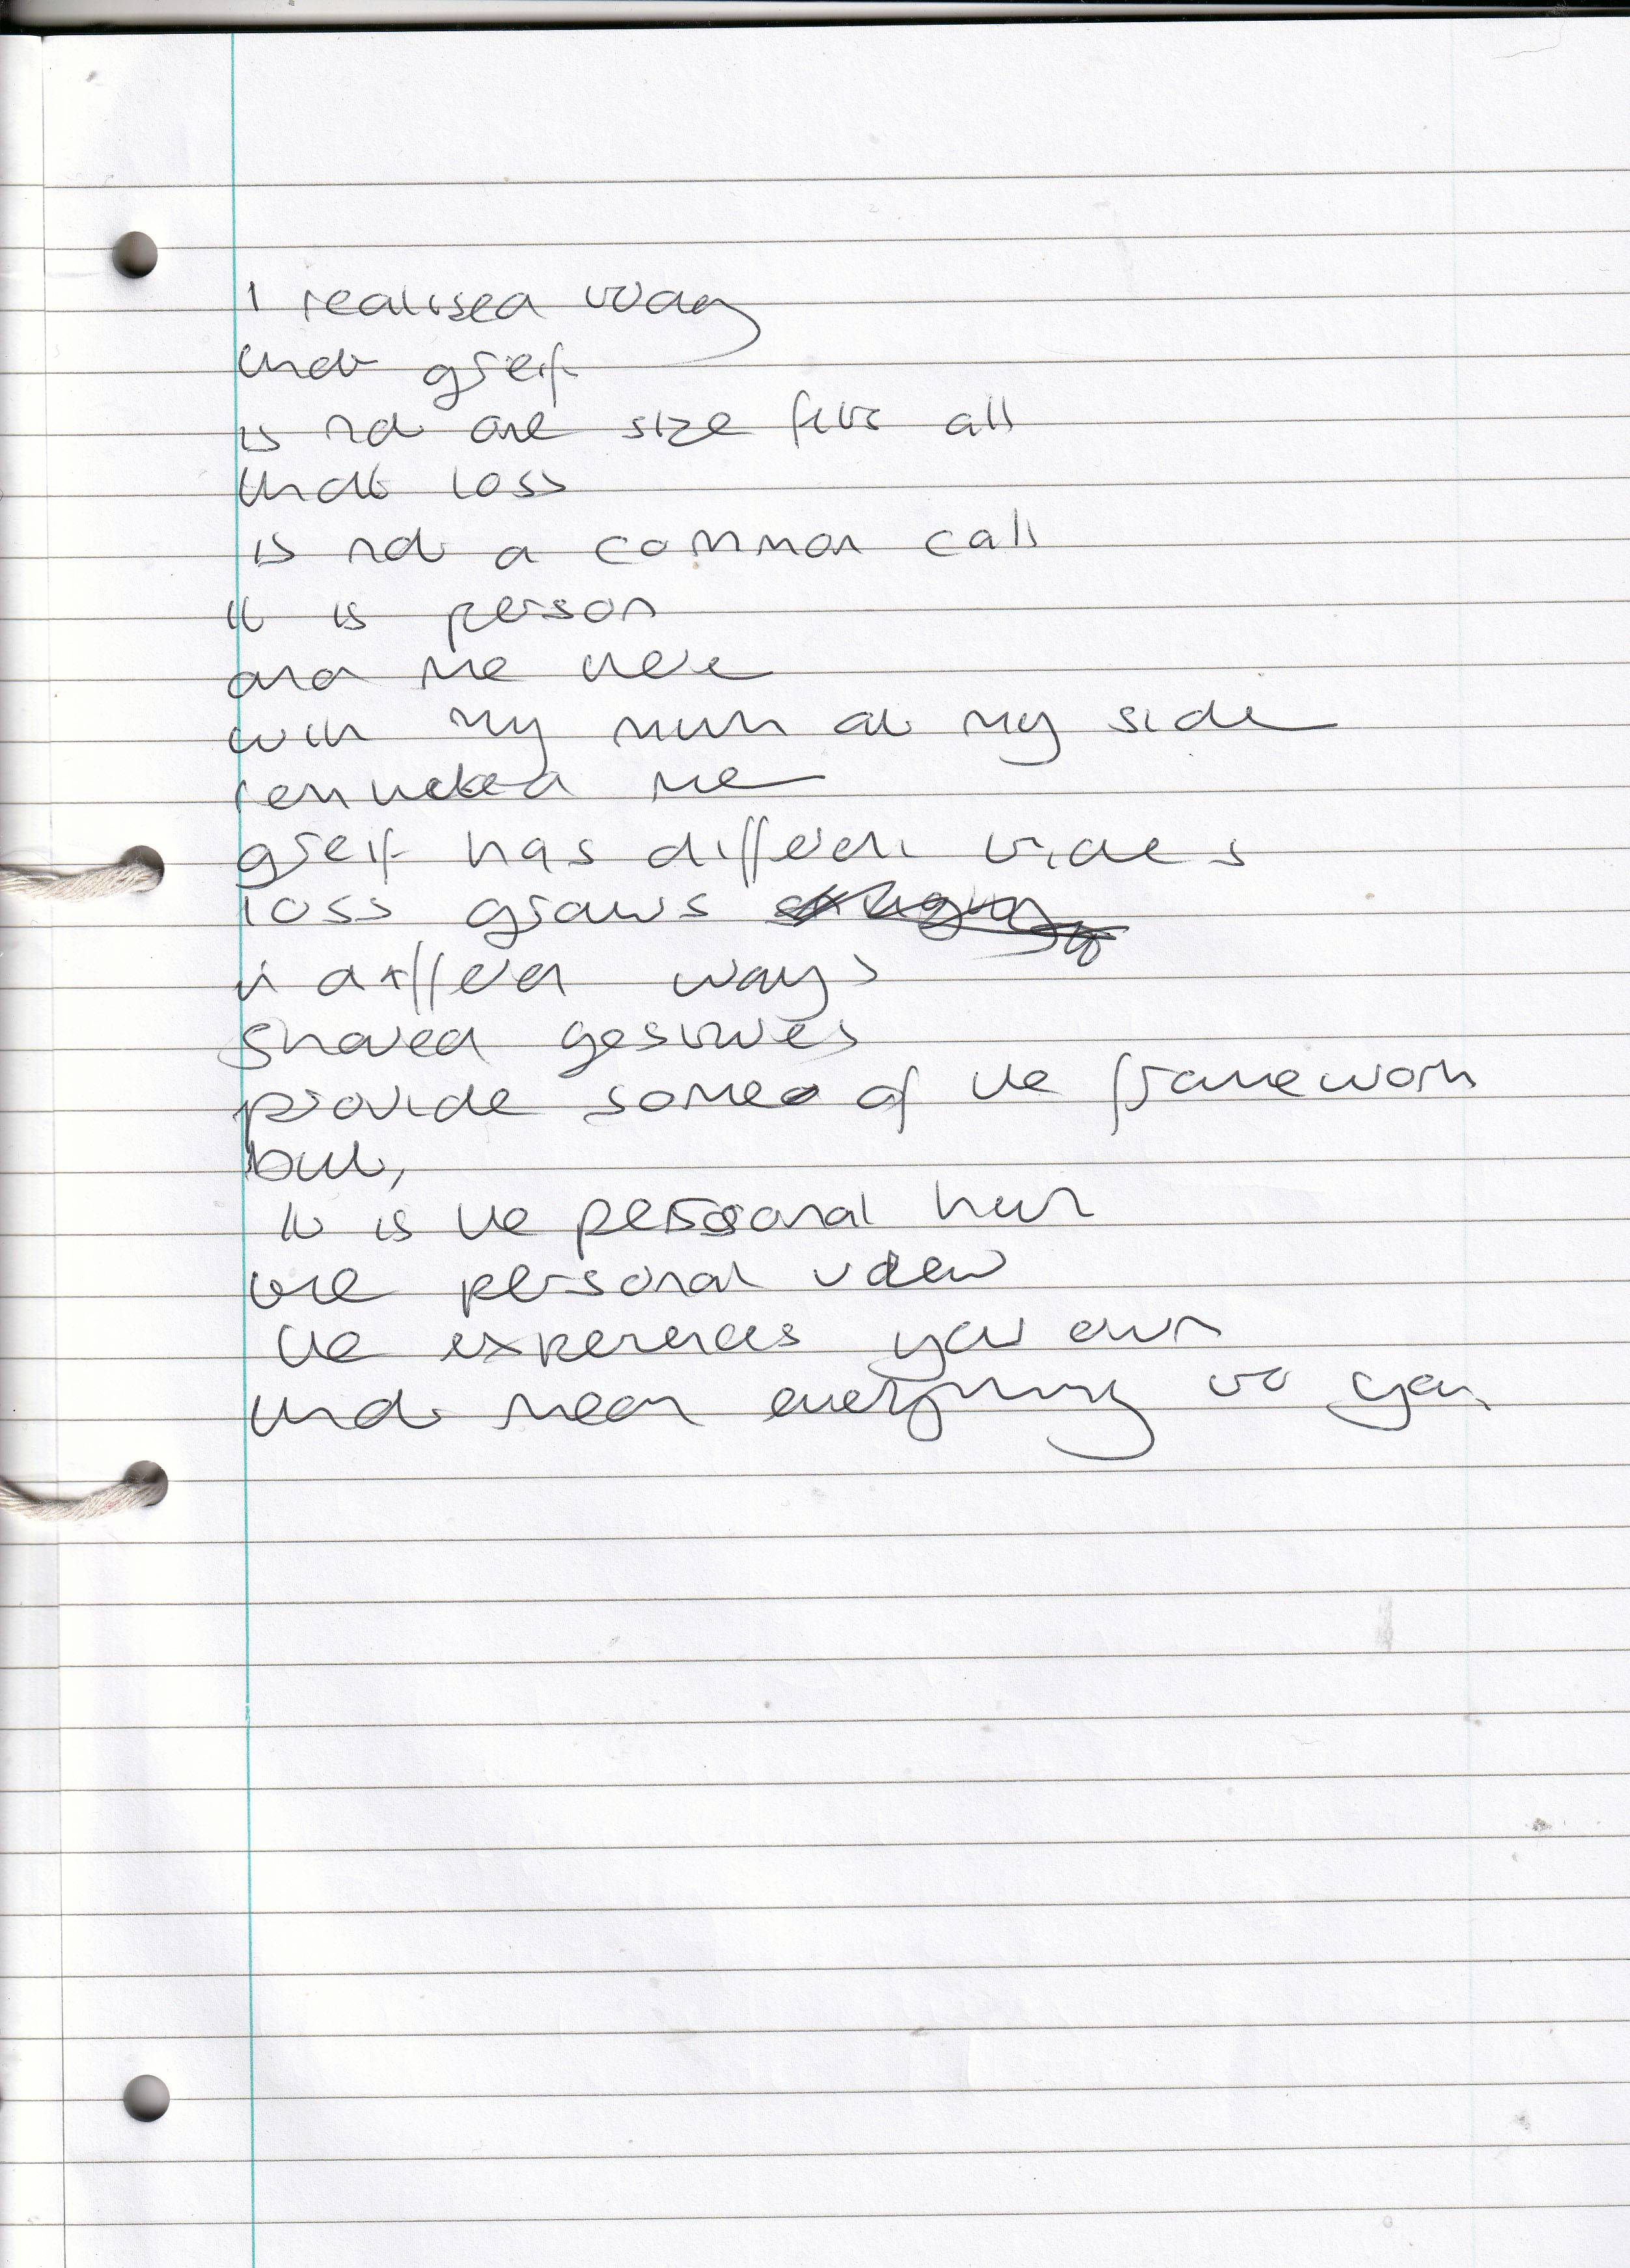 I realised today
that greif
is not one size fits all
that loss
is not a common call
it is person
and me here
with my mum at my side
reminded me
greif has different tides
loss grows
in different ways
shared gestures
provide some of the framework
but,
it is the personal hurt
the personal view
the experiences your own
that mean everything to you